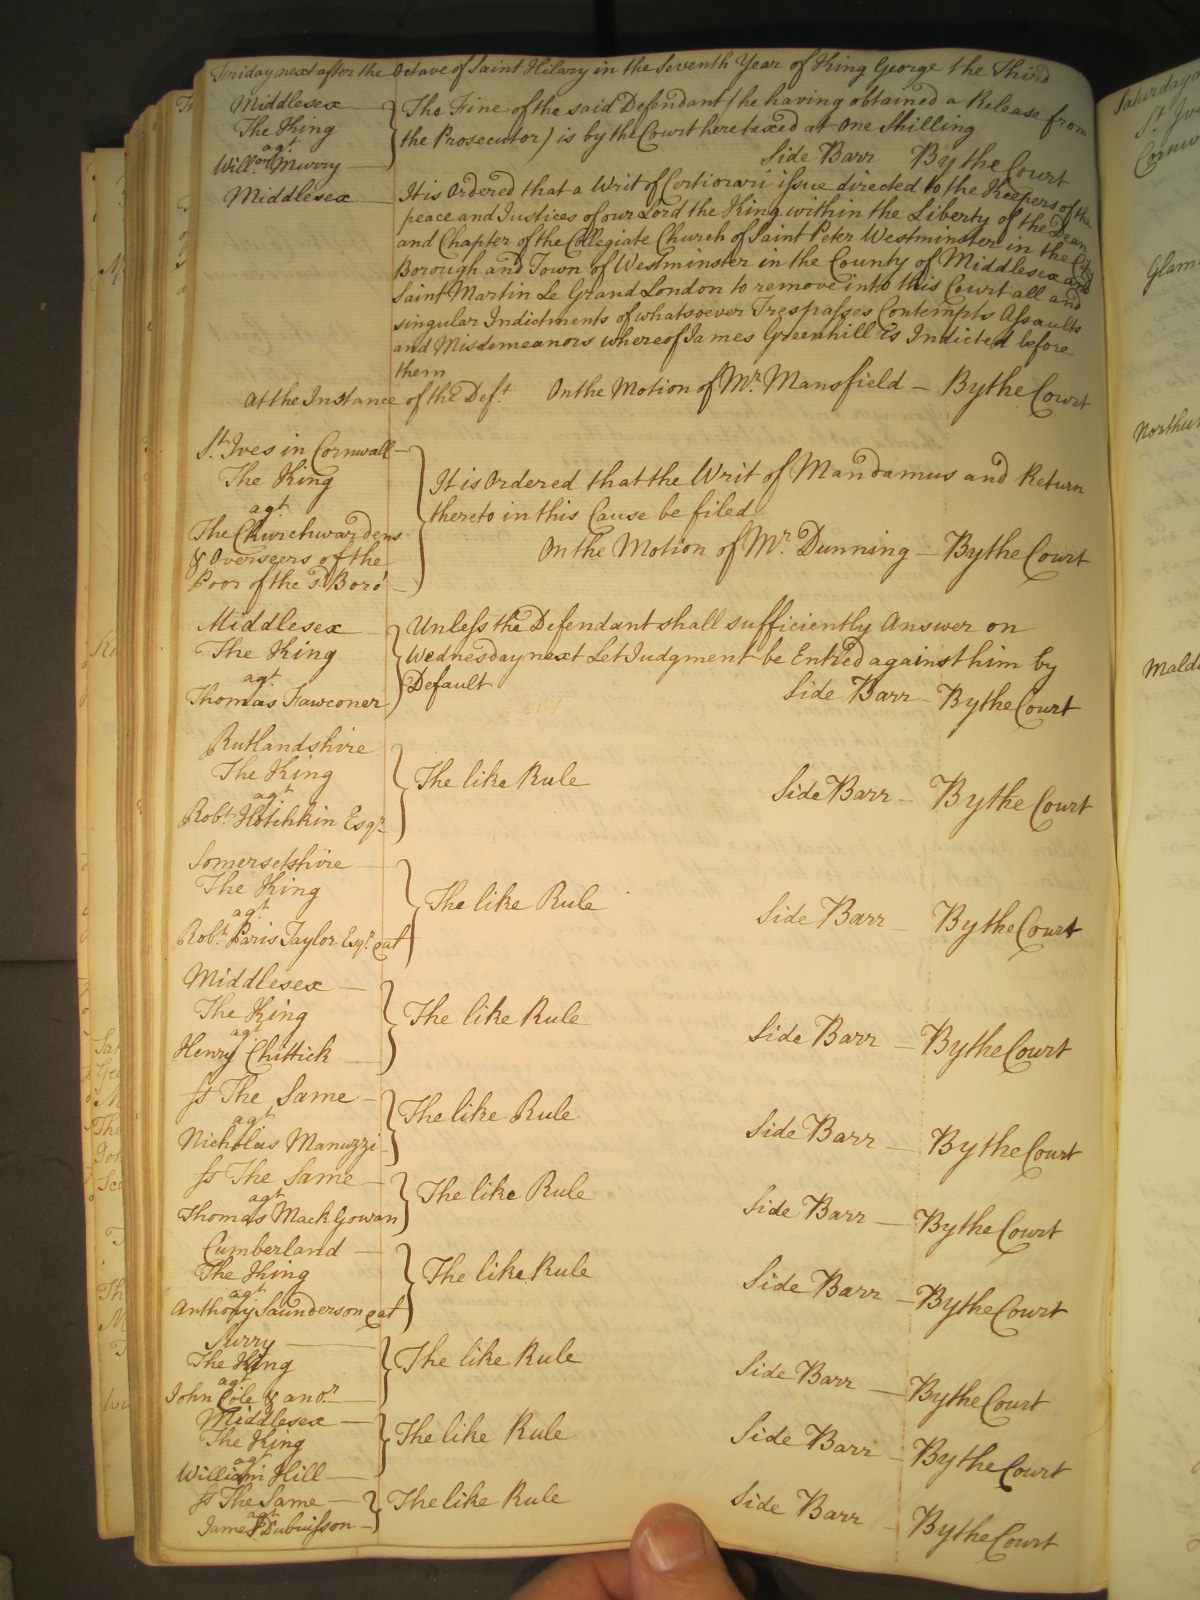 Friday next after the Octave of Saint Hilary in the Seventh Year of King George the Third
Middlesex
The King
agt
Willm Murry
The Fine of the said Defendant (he having obtained a Release from
the Prosecutor) is by the Court here taxed at One Shilling
Side Barr By the Court
Middlesex
It is Ordered that a Writ of Certiorari issue directed to the Keepers of the
peace and Justices of our Lord the King within the Liberty of the Dean
and Chapter of the Collegiate Church of Saint Peter Westminster in the City
Borough and Town of Westminster in the County of Middlesex and
Saint Martin Le Grand London to remove into this Court all and
singular Indictments of whatsoever Trespasses Contempts Assaults
and Misdemeanors whereof James Greenhill is Indicted before
them
At the Instance of the Deft. On the Motion of Mr. Mansfield – By the Court
St. Ives in Cornwall
The King
agt
The Churchwardens
& Overseers of the
Poor of the sd. Boro'
It is Ordered that the Writ of Mandamus and Return
thereto in this Cause be filed
On the Motion of Mr. Dunning – By the Court
Middlesex
The King
agt
Thomas Fawconer
Unless the Defendant shall sufficiently Answer on
Wednesday next Let Judgment be Entred against him by
Default
Side Barr By the Court
Rutlandshire
The King
agt
Robt. Hotchkin Esqr.
The like Rule Side Barr – By the Court
Somersetshire
The King
agt
Robt. Paris Taylor Esqr. &al
The like Rule Side Barr – By the Court
Middlesex
The King
agt
Henry Chittick
The like Rule Side Barr – By the Court
Ss The Same
agt
Nicholas Manuzzi
The like Rule Side Barr – By the Court
Ss The Same
agt
Thomas MackGowan
The like Rule Side Barr – By the Court
Cumberland
The King
agt
Anthony Saunderson &al
The like Rule Side Barr – By the Court
Surry
The King
agt
John Cole & anor.
The like Rule Side Barr – By the Court
Middlesex
The King
agt
William Hill
The like Rule Side Barr – By the Court
Ss The Same
agt
James Dubuisson
The like Rule Side Barr – By the Court
Saturday
St. Ives
Cornw
Glam
Northu
Mald